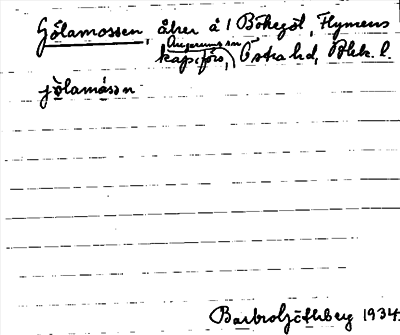 Gölamossen, åker å 1 Bökegöl, Flymens
Augerums sn
kap.förs., Östra hd, Blek. l.
jölamåsen
Barbro Göthberg 1934.